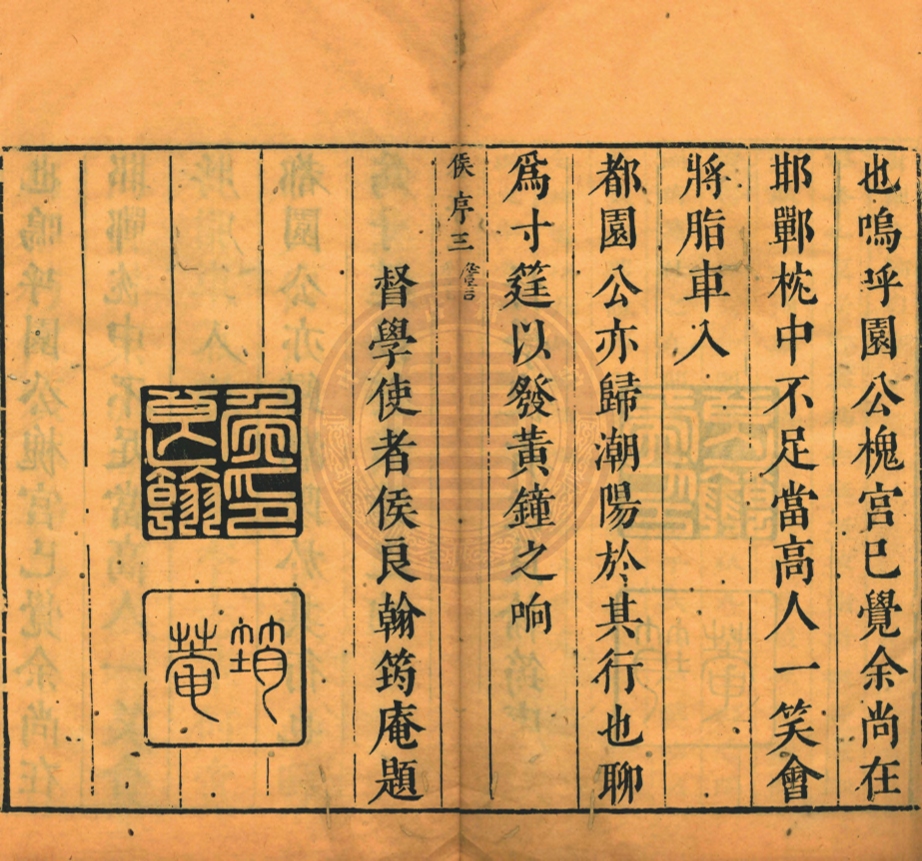 也嗚呼園公槐宮已覺余尚在
耶鄲枕中不足當高人一笑會
將脂車入
都園公亦歸潮陽於其行也聊
爲寸筳以發黃鐘之响
侯序三
督學使者侯良翰筠庵題
侯印良翰
筠菴